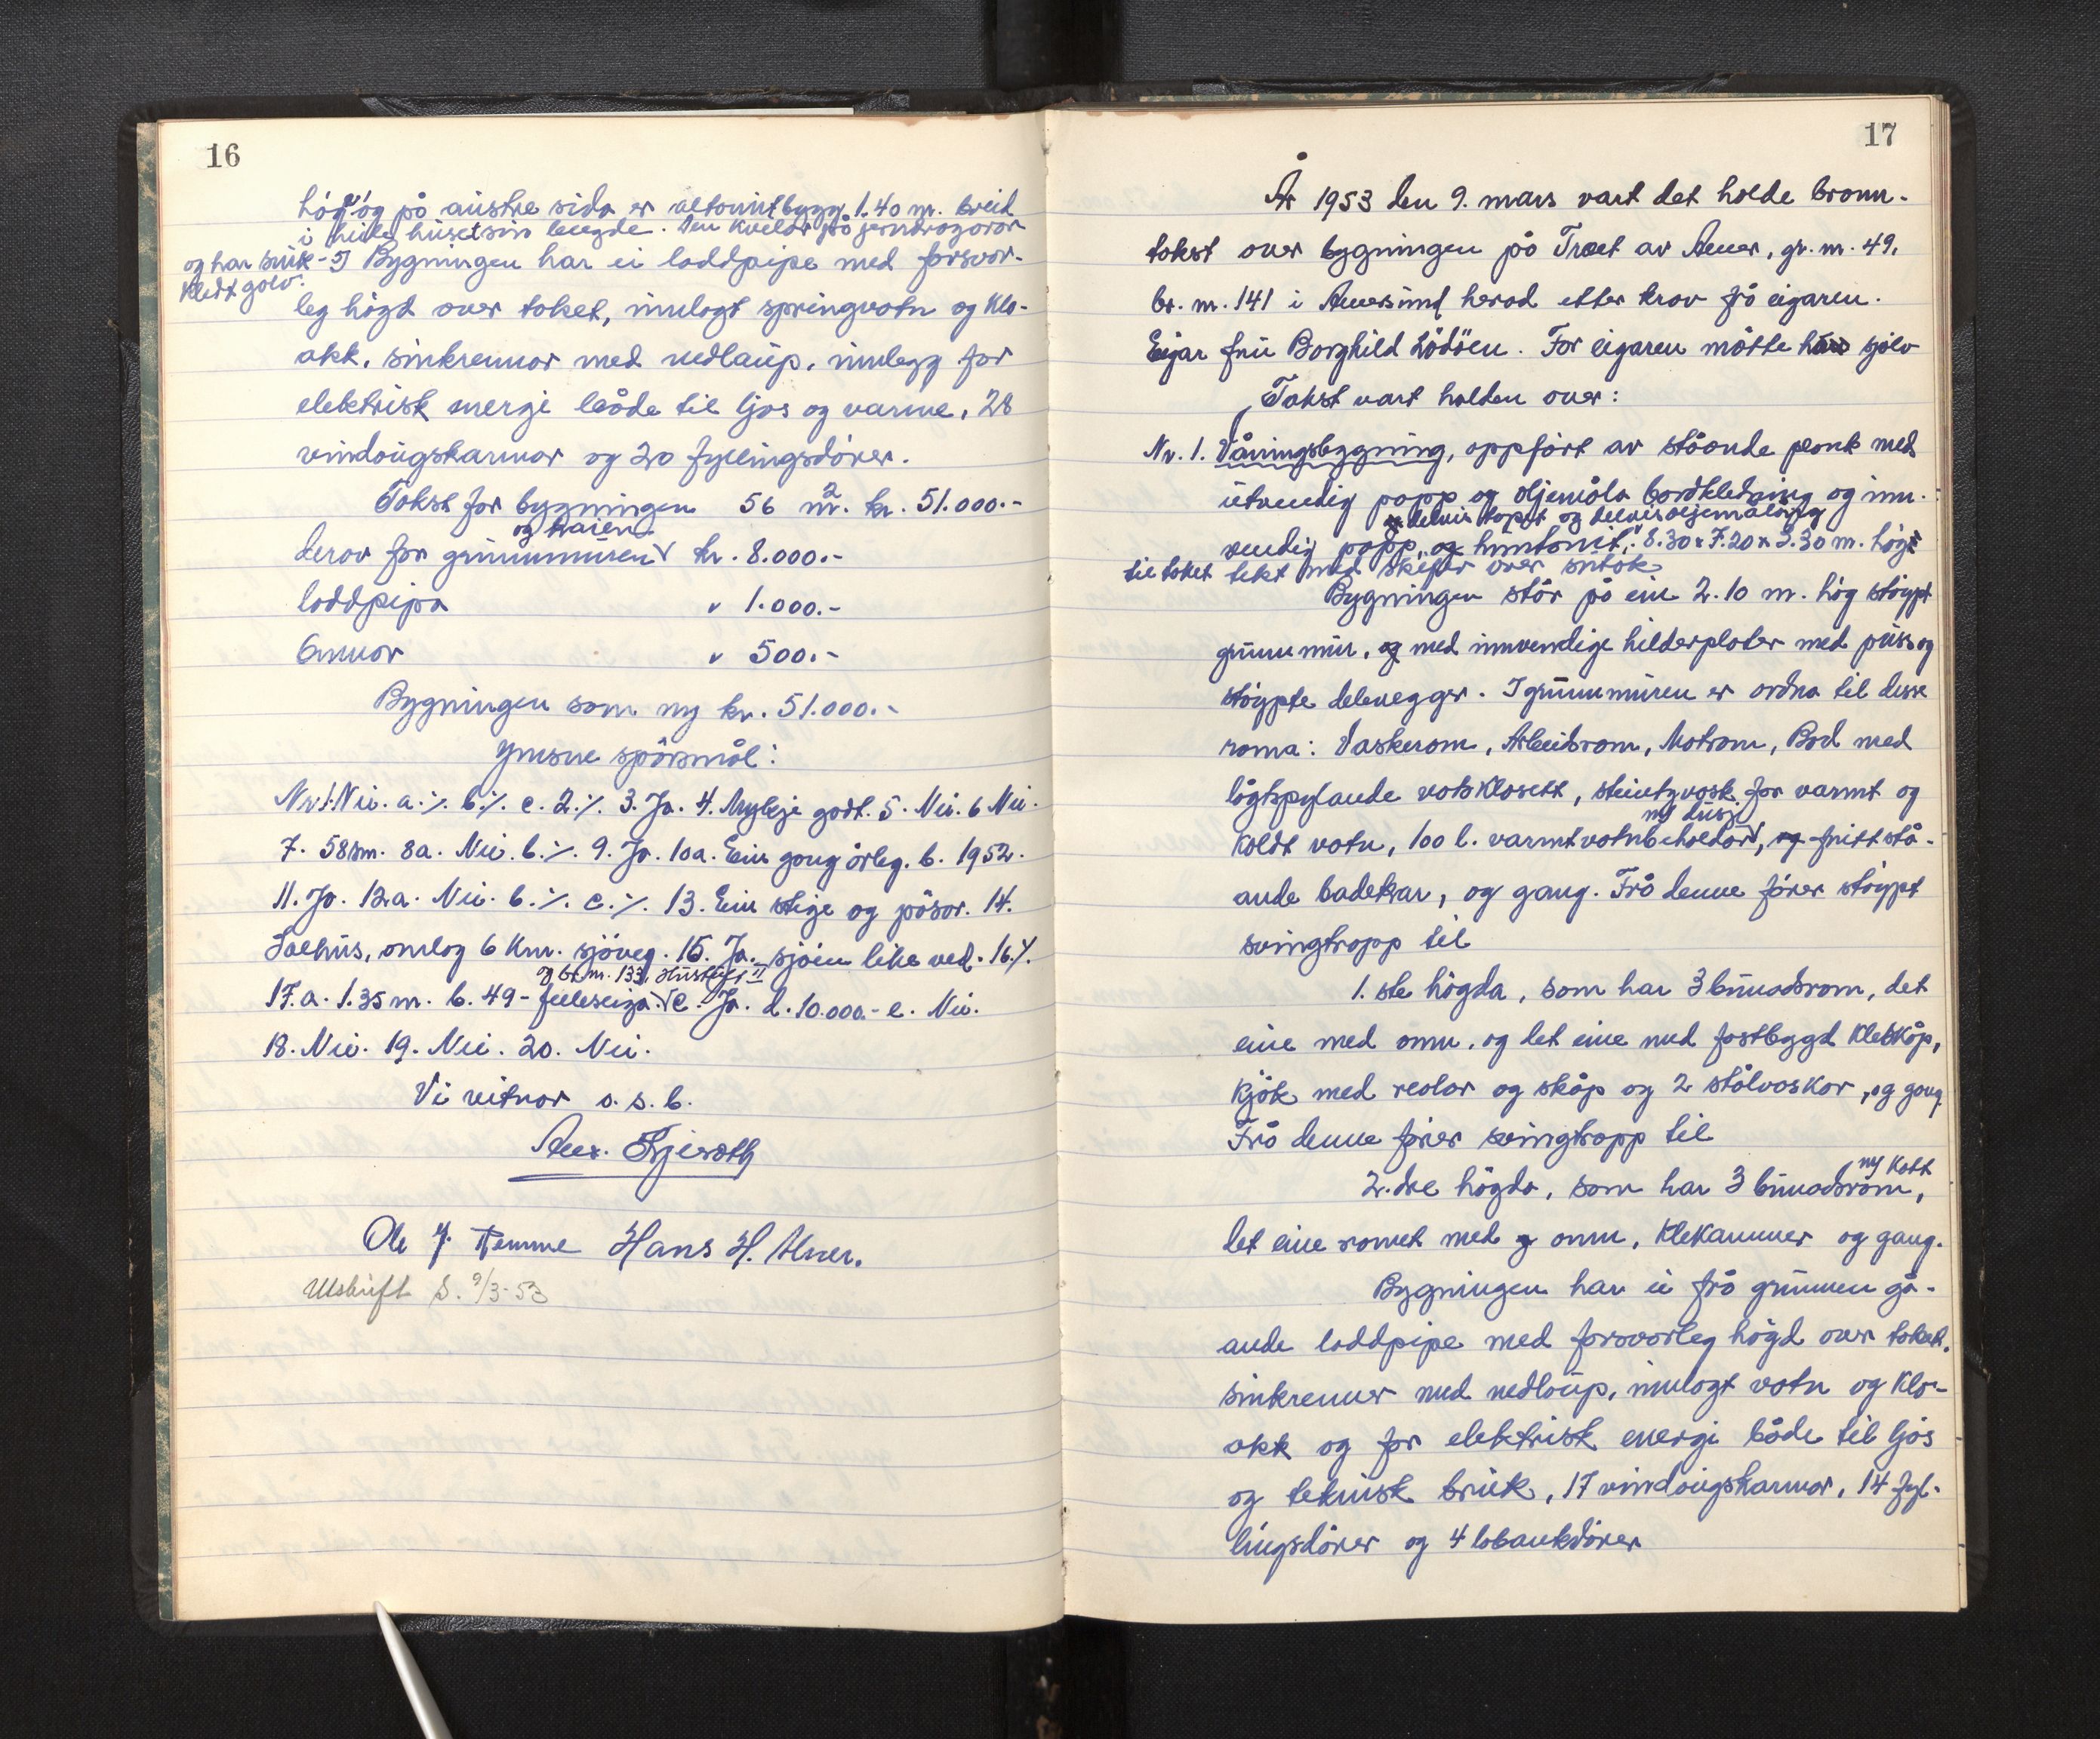 16
høg og på austre sida er altanutbygg 1.40 m. breid
i heile huset sin lengde. Den kviler på jerndragarar
og har sink-
kledt golv.
Bygningen har ei loddpipe med forsvar-
leg högd over taket, innlagt springvatn og klo-
akk, sinkrennor med nedlaup, innlegg for
elektrisk energi både til ljos og varme, 28
vindaugskarmar og 20 fyllingsdörer.
Takst for bygningen 56 m². kr. 51.000.-
og kaien
derav for grunnmuren kr. 8.000.-
loddpipa " 1.000.-
omnar " 500.-
Bygningen som ny kr. 51.000.-
Ymsne spörsmål:
Nr 1. Nei. a. ·/. b. ·/. c. 2. ·/. 3. Ja. 4. Mykje godt. 5. Nei. 6 Nei.
7. 58 m. 8a. Nei. b. ·/. 9. Ja. 10a. Ein gong årleg. b. 1952.
11. Ja. 12.a. Nei. b. ·/. c. ·/. 13. Ein stige og pösar. 14.
Salhus, omlag 6 km. sjöveg. 15. Ja. sjöen like ved. 16. ·/.
og br. nr. 133,
17.a. 1.35 m. b. 49 - felleseiga. c. Ja. d. 10.000.- e. Nei.
18. Nei. 19. Nei. 20. Nei.
Vi vitnar o. s. b.
Hans H. Alver.
Utskrift S. 9/3-53
17
År 1953 den 9. mars vart det holde brann-
takst over bygningen på Træet av Alver, gr. nr. 49,
br. nr. 141 i Alversund herad etter krav frå eigaren.
Eigar fru Borghild Lödöen. For eigaren mötte sjölv
Takst vart halden over:
Nr. 1. Våningsbygning, oppfört av ståande plank med
utvendig papp og oljemåla bordkledning og inn-
delvis tapet og delvis oljemåling
vendig papp og huntonit. 8.30 x 7.20 x 5.30 m. högt
til taket tekt med skifer over sutak
Bygningen står på ein 2.10 m. hög stöypt
grunnmur, og med innvendige hilderplater med puss og
stöypte delevegger. I grunnmuren er ordna til desse
roma: Vaskerom, Arbeidsrom, Matrom, Bod med
lågtspylande vatsklosett, steintyvask for varmt og
ny dusj
koldt vatn, 100 l. varmtvatnbeholdar, og frittstå-
ande badekar, og gang. Frå denne förer stöypt
svingtrapp til
1. ste högda, som har 3 buuadsrom, det
eine med omn, og det eine med fastbygd kleskåp,
kjök med reolar og skåp og 2 stålvaskar, og gang.
Frå denne förer svingtrapp til
ny kott
2.dre högda, som har 3 buuadsrom,
det eine romet med omn, klekammer og gang.
Bygningen har ei frå grunnen gå-
ande loddpipe med forsvarleg högd over taket,
sinkrenner med nedlaup, innlagt vatn og klo-
akk og for elektrisk energi både til ljos
og teknisk bruk, 17 vindaugskarmar, 14 fyl-
lingsdörer og 4 labankdörer